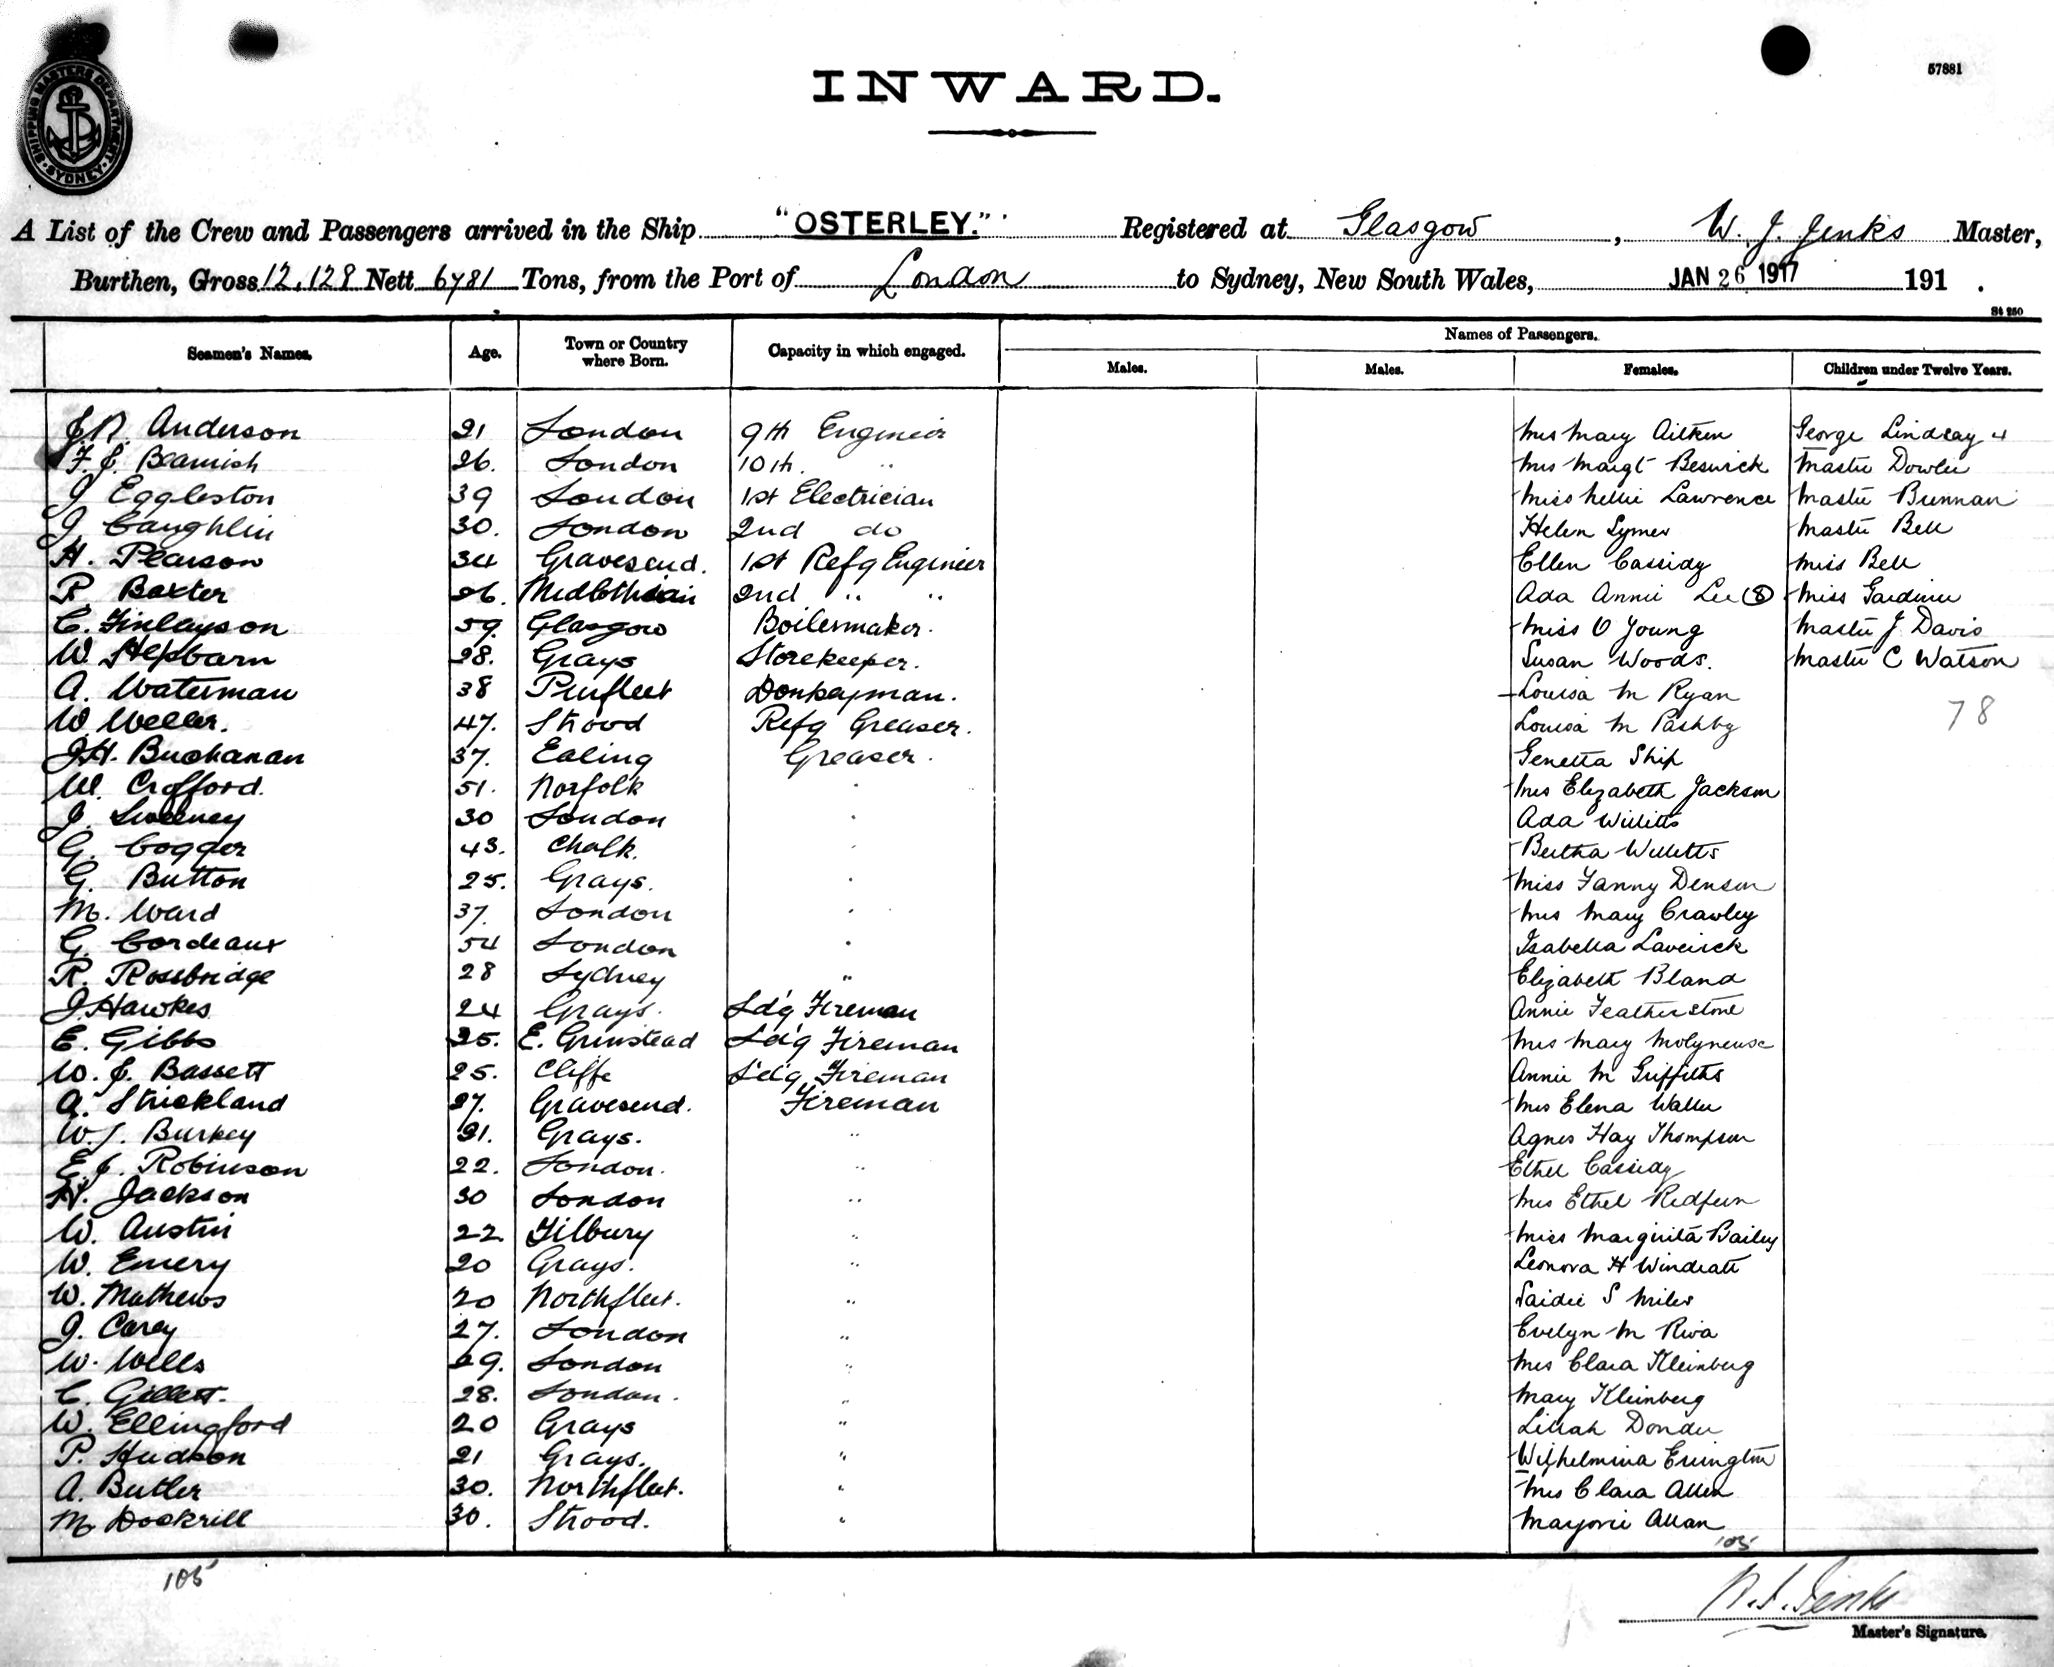 SHIPPING MASTERS DEPARTMENT. SYDNEY
57881
INWARD.
A List of the Crew and Passengers arrived in the Ship "OSTERLEY." Registered at Glasgow, W. J. Jenks Master,
Burthen, Gross 12,129 Nett 6781 Tons, from the Port of London to Sydney, New South Wales, JAN 26 1917 191 .
St 250
Seamen's Names. Age. Town or Country where Born. Capacity in which engaged. Names of Passengers.
Males. Males. Females. Children under Twelve Years.
Anderson 21 London 9th Engineer Mrs Mary Aitken George Lindsay 4
F. J. Beamish 26. London 10th. " Mrs Margt Beswick Master Dowler
J Eggleston 39 London 1st Electrician Miss Nellie Lawrence Master Brennan
J Caughlin 30. London 2nd do Helen Symes Master Bell
H. Pearson 34 Gravesend. 1st Refg Engineer Ellen Cassidy Miss Bell
R Baxter 26. Midlothian 2nd " " Ada Annie Lee (8) Miss Gardiner
C. Finlayson 59. Glasgow Boilermaker. Miss O Young Master J Davis
W Hepbarn 28. Grays Storekeeper. Susan Woods. Master C Watson
A. Waterman 38 Purfleet Donkeyman. Louisa M Ryan
W Weller. 47. Strood Refg Greaser. Louisa M Pashby 78
J.H. Buchanan 37. Ealing Greaser. Genetta Ship
W. Crofford. 51. Norfolk " Mrs Elizabeth Jackson
J. Sweeney 30 London " Ada Willitts
G. Cogger 43. Chalk. " Bertha Willetts
G. Button 25. Grays. " Miss Fanny Denson
M. Ward 37. London " Mrs Mary Crawley
G. Cordeaux 54 London " Isabella Laverick
R. Rosebridge 28 Sydney " Elizabeth Bland
J. Hawkes 24 Grays. Ldg Fireman Annie Featherstone
E. Gibbs 25. E. Grinstead Ldg Fireman Mrs Mary Molyneux
W. J. Bassett 25. Cliffe Ldg Fireman Annie M Griffiths
A. Strickland 27. Gravesend. Fireman Mrs Elena Waller
W. J. Burkey 21. Grays. " Agnes Hay Thompson
E. J. Robinson 22. London. " Ethel Cassidy
H. Jackson 30 London " Mrs Ethel Redfern
W. Austin 22. Tilbury " Miss Margurita Bailey
W. Emery 20 Grays. " Leonora H Windeatt
W. Mathews 20 Northfleet. " Saidie S Miles
J. Carey 27. London " Evelyn M Riva
W. Wells 29. London " Mrs Clara Kleinberg
C. Gillett. 28. London. " Mary Kleinberg
W. Ellingford 20 Grays " Lillah
P. Hudson 21 Grays. " Wilhelmina Errington
A. Butler 30. Northfleet. " Mrs Clara Allen
M Dockrill 30. Strood. " Marjorie Allan
105 105
W. J. Jenks
Master's Signature.